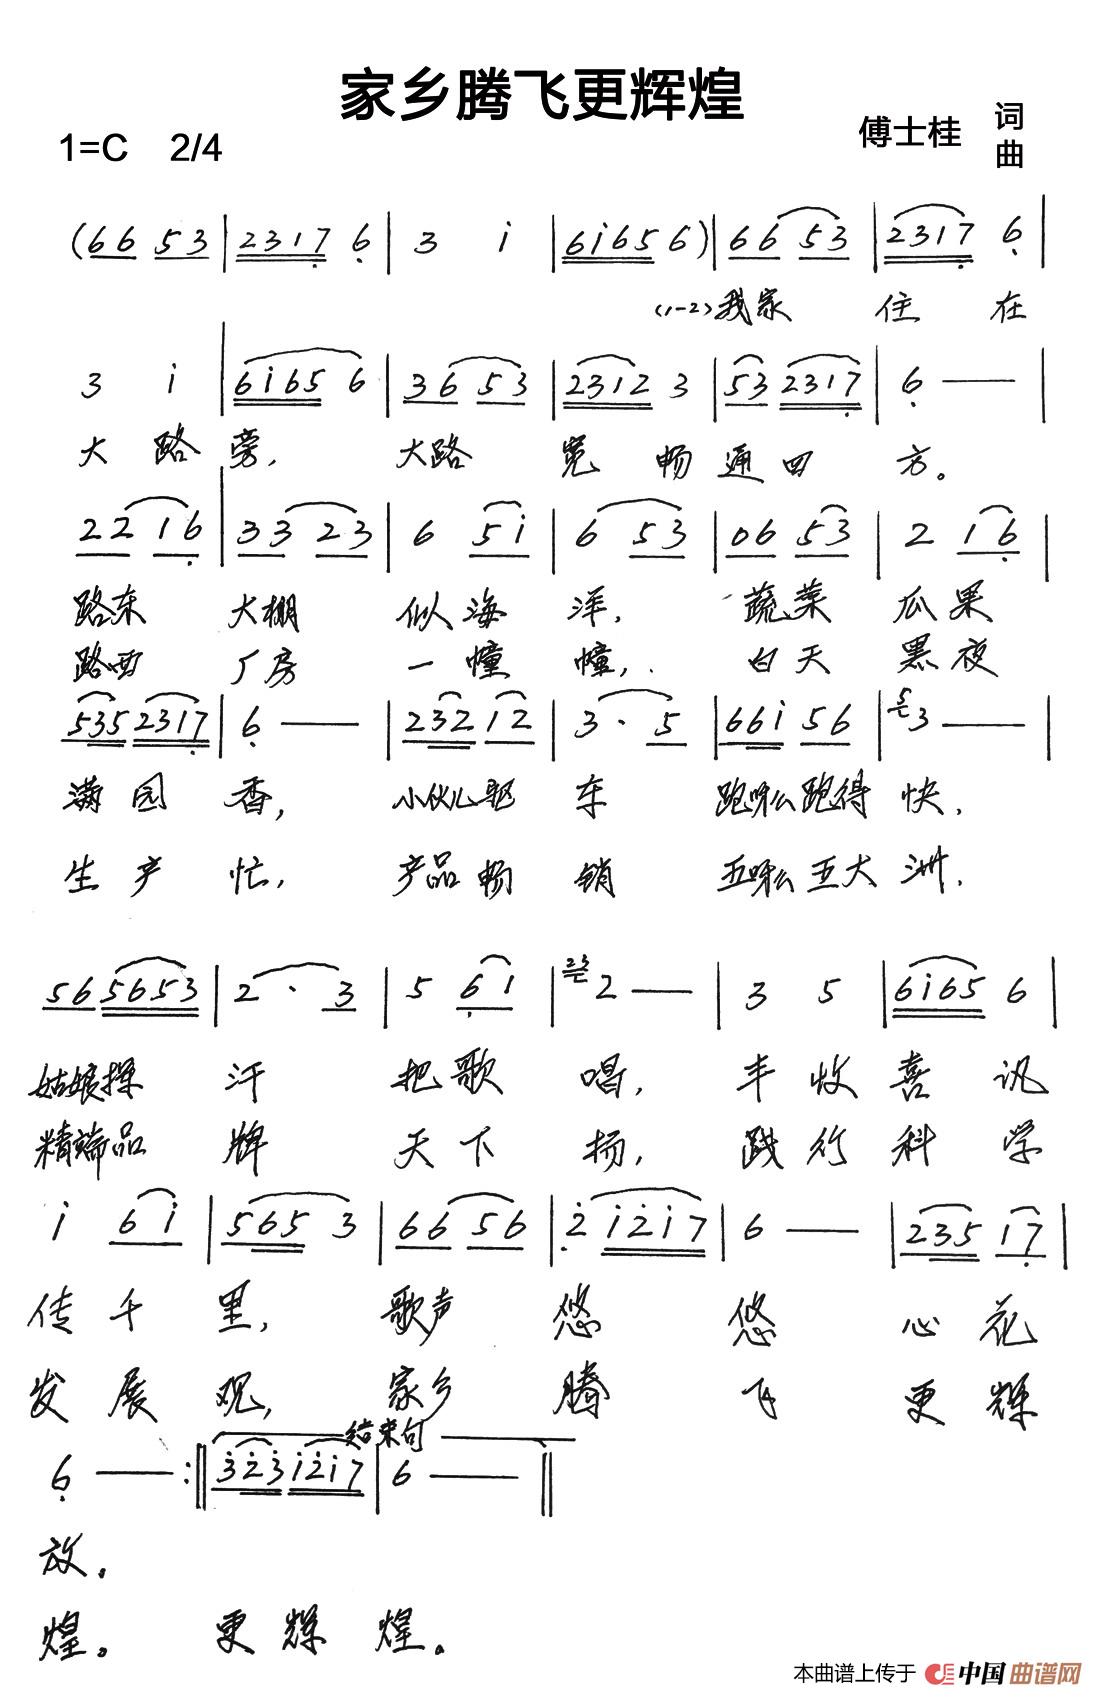 家乡腾飞更辉煌
1=C 2/4 傅士桂 词
曲
(66 53 | 2317 6 | 3 i | 6i65 6) | 66 53 | 2317 6 |
(1-2)我家 住 在
3 i | 6i65 6 | 36 53 | 2312 3 | 53 2317 | 6 —
大 路 旁, 大路 宽 畅 通 四 方。
22 16 | 33 23 | 6 5i | 6 53 | 06 53 | 2 16 |
路东 大棚 似 海 洋, 蔬菜 瓜果
路西 厂房 一 幢 幢, 白天 黑夜
535 2317 | 6 — | 232 12 | 3 · 5 | 66i 56 | 5 3 — |
满 园 香, 小伙儿驱 车 跑呀么跑得 快,
生 产 忙, 产品畅 销 五呀么五大 洲,
56 5653 | 2 · 3 | 5 61 | 23 2 — | 3 5 | 6i65 6 |
姑娘擦 汗 把歌 唱, 丰 收 喜 讯
精端品 牌 天下 扬, 践 行 科 学
i 6i | 565 3 | 66 56 | 2 i2i7 | 6 — | 235 17 |
传 千 里, 歌声 悠 悠 心 花
发 展 观, 家乡 腾 飞 更 辉
结束句
6 — :|| 323 i2i7 | 6 — ||
放.
煌。 更 辉 煌。
本曲谱上传于 中国曲谱网